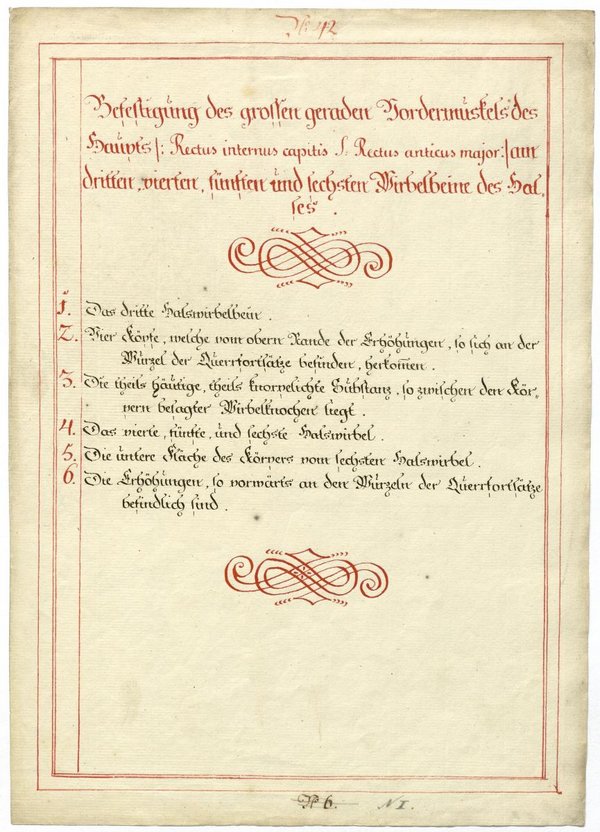 No 42
Befestigung des grossen geraden Vordermuskels des
Haupts |: Rectus internus capitis S. Rectus anticus major :| am
dritten, vierten, fünften und sechsten Wirbelbeine des Hal-
ses.
1. Das dritte Halswirbelbein.
2. Vier Köpfe, welche vom obern Rande der Erhöhungen, so sich an der
Würzel der Querrfortsätze befinden, herkom̅en.
3. Die theils häutige, theils knorpelichte Substanz, so zwischen den Kör-
pern besagter Wirbelknochen liegt.
4. Das vierte, fünfte, und sechste Halswirbel.
5. Die untere Fläche des Körpers vom sechsten Halswirbel.
6. Die Erhöhungen, so vorwärts an den Würzeln der Querrfortsätze
befindlich sind.
No 6. N I.